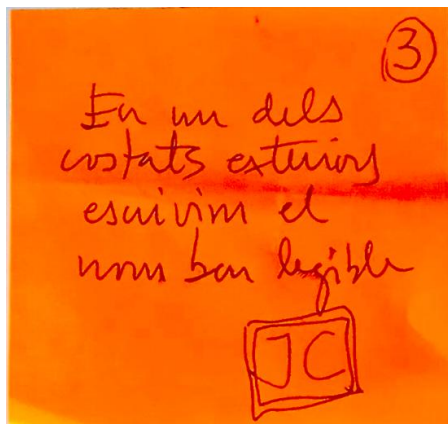 3
En un dels
costats exteriors
escrivim el
nom ben legible
JC